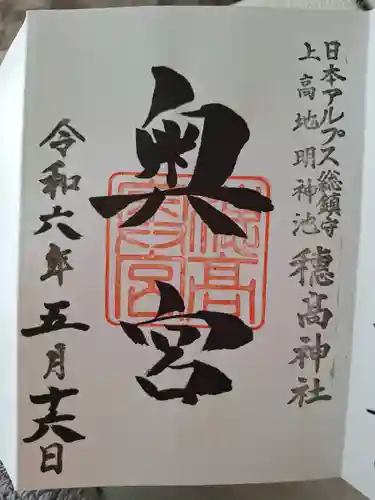 日本アルプス総鎮守
上高地明神池
穂髙神社
奥宮
穂高
奥宮
令和六年五月十六日